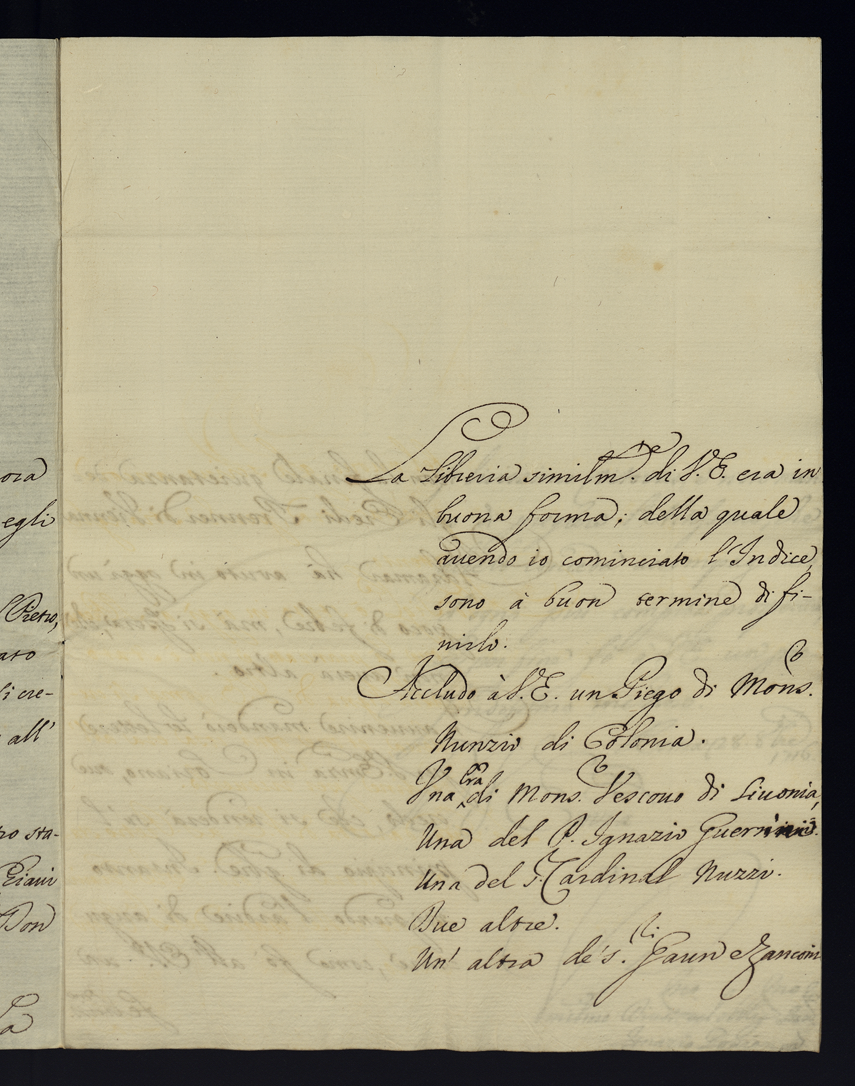 ora
egli
Pietro,
ato
li cre-
all'
ro sta-
Don
La
La Libreria similm.te di V.E. era in
buona forma; della quale
avendo io cominciato l'Indice,
sono à buon termine di fi-
nirlo.
Accludo à V.E. un Piego di Mons.
Nunzio di Colonia.
Una Lra di Mons. Vescovo di Livonia,
Una del P. Ignazio
Una del S. Cardinal Nuzzi.
Due altre.
Un' altra de' S.ri e Zanconi